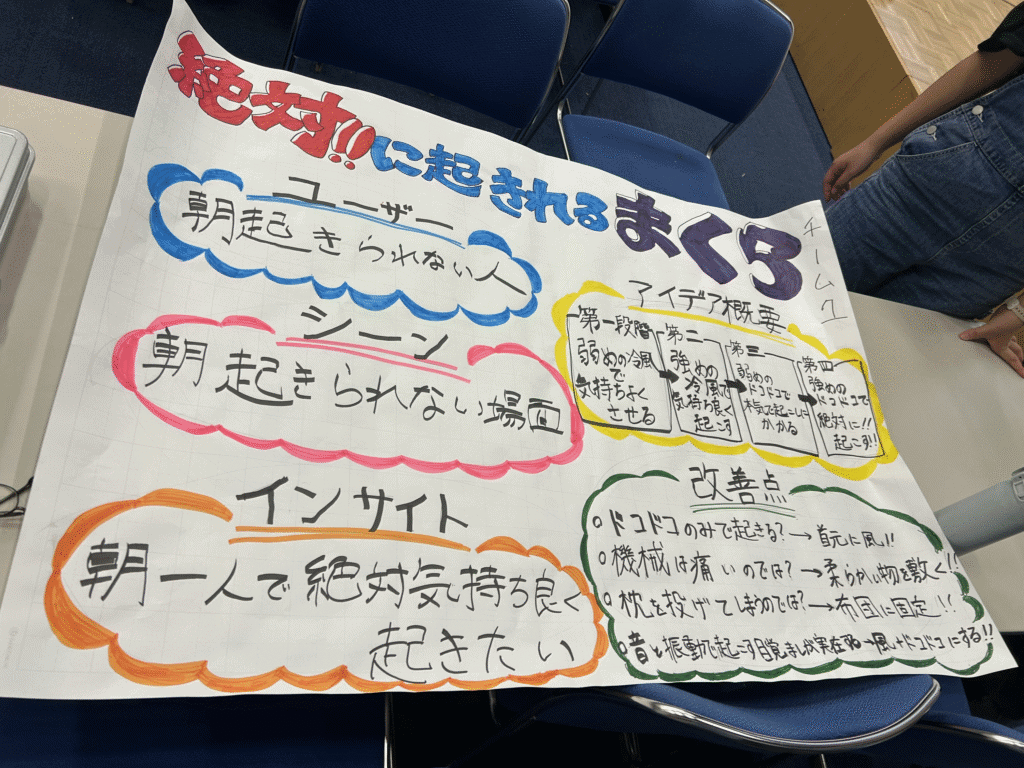 絶対!!に起きれるまくら
チームク
ユーザー
朝起きられない人
シーン
朝起きられない場面
インサイト
朝一人で絶対気持ち良く
起きたい
アイデア概要
第一段階
弱めの冷風
で
気持ちよく
させる
→
第二
強めの
冷風で
気持ち良く
起こす
→
第三
弱めの
ドコドコで
本気で起こしに
かかる
→
第四
強めの
ドコドコで
絶対に!!
起こす!!
改善点
○ドコドコのみで起きる?→首元に風!!
○機械は痛いのでは?→柔らかい物を敷く!!
○枕を投げてしまうのでは?→布団に固定!!
○音と振動で起こす目覚ましは実在する→風+ドコドコにする!!